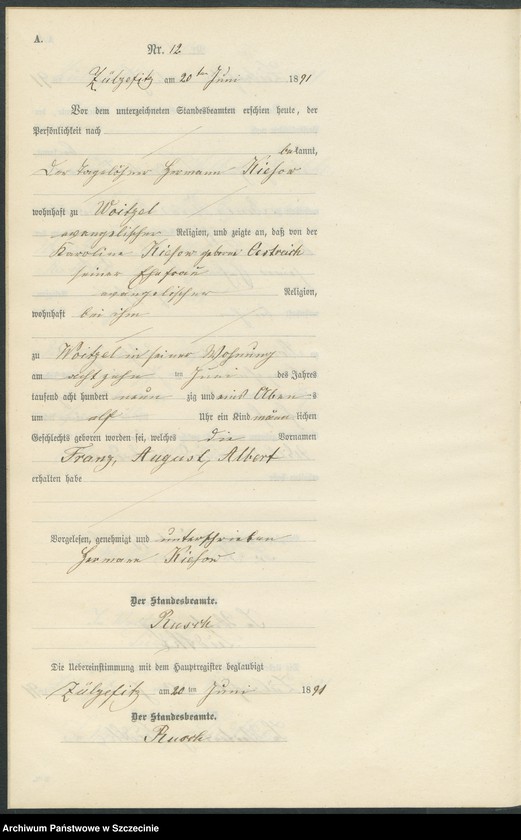 A.
Nr. 12
Zülzefitz am 20ten Juni 1891
Vor dem unterzeichneten Standesbeamten erschien heute, der
Persönlichkeit nach
bekannt,
der Tagelöhner Hermann Kiesow
wohnhaft zu Woitzel
evangelischer Religion, und zeigte an, daß von der
Karoline Kiesow geborne Oestreich
seiner Ehefrau
evangelischer Religion,
wohnhaft bei ihm
zu Woitzel in seiner Wohnung
am achtzehn ten Juni des Jahres
tausend acht hundert neun zig und eins Abends
um elf Uhr ein Kind männlichen
Geschlechts geboren worden sei, welches die Vornamen
Franz, August, Albert
erhalten habe
Vorgelesen, genehmigt und unterschrieben
Hermann Kiesow
Der Standesbeamte.
Rusch
Die Uebereinstimmung mit dem Hauptregister beglaubigt
Zülzefitz am 20 ten Juni 1891
Der Standesbeamte.
Rusch
Archiwum Państwowe w Szczecinie